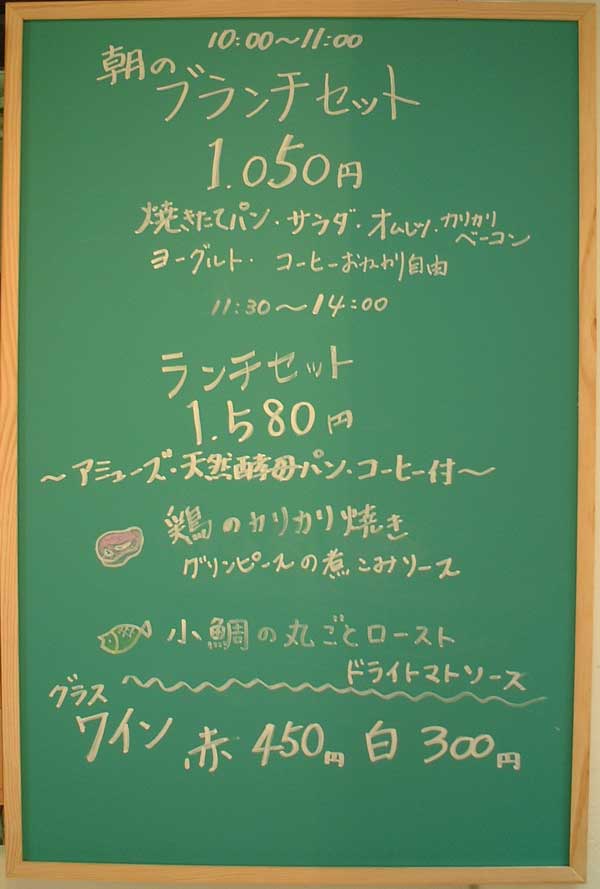 10:00〜11:00
朝の
ブランチセット
1.050円
焼きたてパン・サラダ・オムレツ・カリカリ
ベーコン
ヨーグルト・ コーヒーおかわり自由
11:30〜14:00
ランチセット
1.580円
〜アミューズ・天然酵母パン・コーヒー付〜
鶏のカリカリ焼き
グリンピースの煮こみソース
小鯛の丸ごとロースト
ドライトマトソース
グラス
ワイン 赤 450円 白 300円